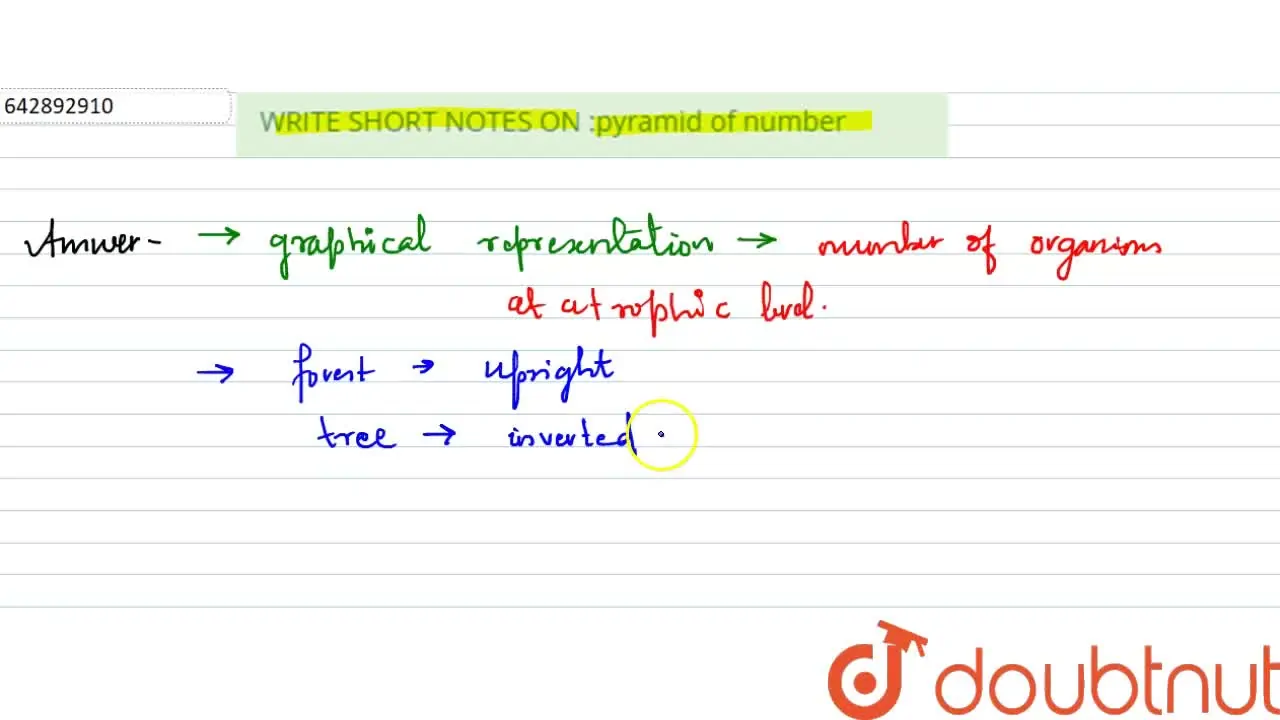 642892910
WRITE SHORT NOTES ON :pyramid of number
Answer- → graphical representation → number of organisms
at a trophic level.
→ forest → upright
tree → inverted
doubtnut